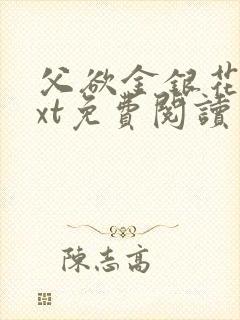 父欲金銀花
xt免費閱讀
陳志高